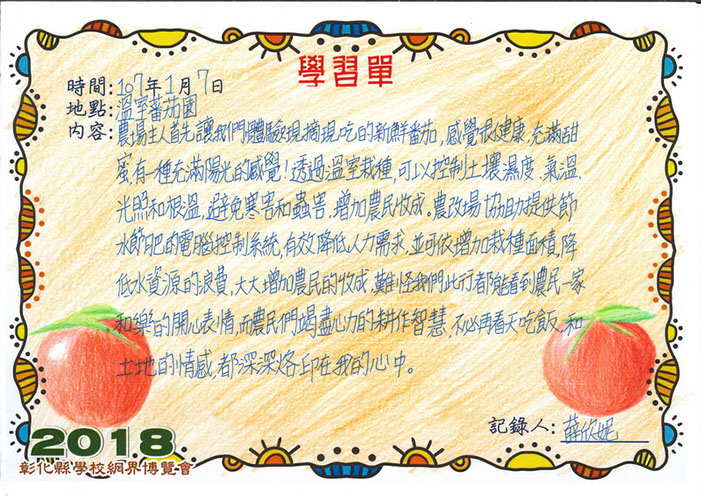 學習單
時間:107年1月7日
地點:溫室蕃茄園
內容:農場主人首先讓我們體驗現摘現吃的新鮮番茄,感覺很健康,充滿甜
蜜,有一種充滿陽光的感覺!透過溫室栽種,可以控制土壤濕度、氣溫、
光照和根溫,避免寒害和蟲害,增加農民收成。農改場協助提供節
水節肥的電腦控制系統,有效降低人力需求,並可依增加栽種面積,降
低水資源的浪費,大大增加農民的收成,難怪我們此行都能看到農民一家
和樂的開心表情,而農民們竭盡心力的耕作智慧,不必再看天吃飯,和
土地的情感,都深深烙印在我的心中。
記錄人:薛欣妮
2018
彰化縣學校網界博覽會